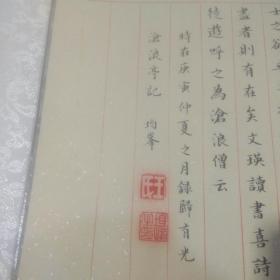 士之欲
盡者則有在矣文瑛讀書喜詩
徒遊呼之為滄浪僧云
時在庚寅仲夏之月錄歸有光
滄浪亭記 均峯